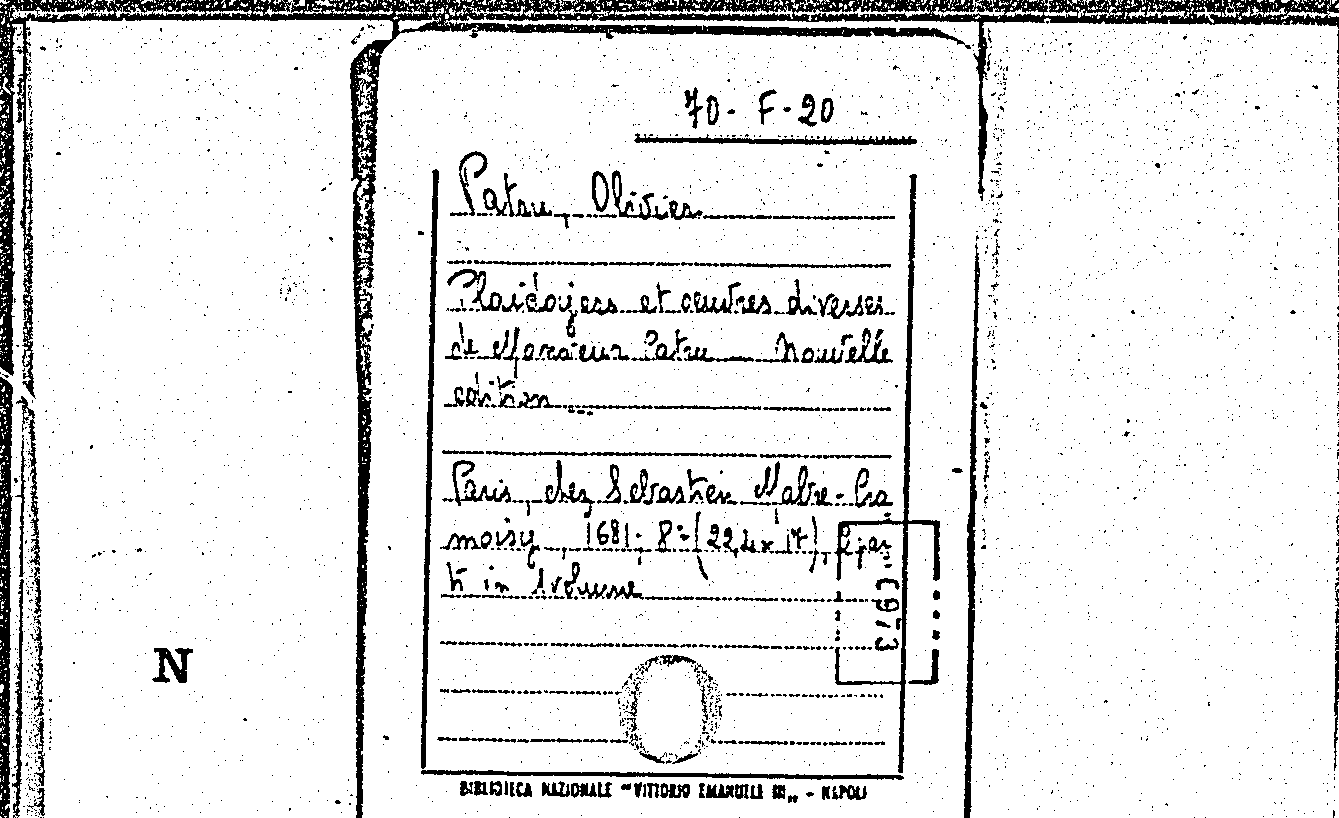 70 - F - 20
Patru, Olivier
Plaidoyers et œuvres diverses
de Monsieur Patru ... Nouvelle
edition ...
Paris, chez Sebastien Mabre-Cra
moisy, 1681; 8° (22,4 x 17), 2 par
ti in 1 volume
1973
N
BIBLIOTECA NAZIONALE "VITTORIO EMANUELE III„ - NAPOLI